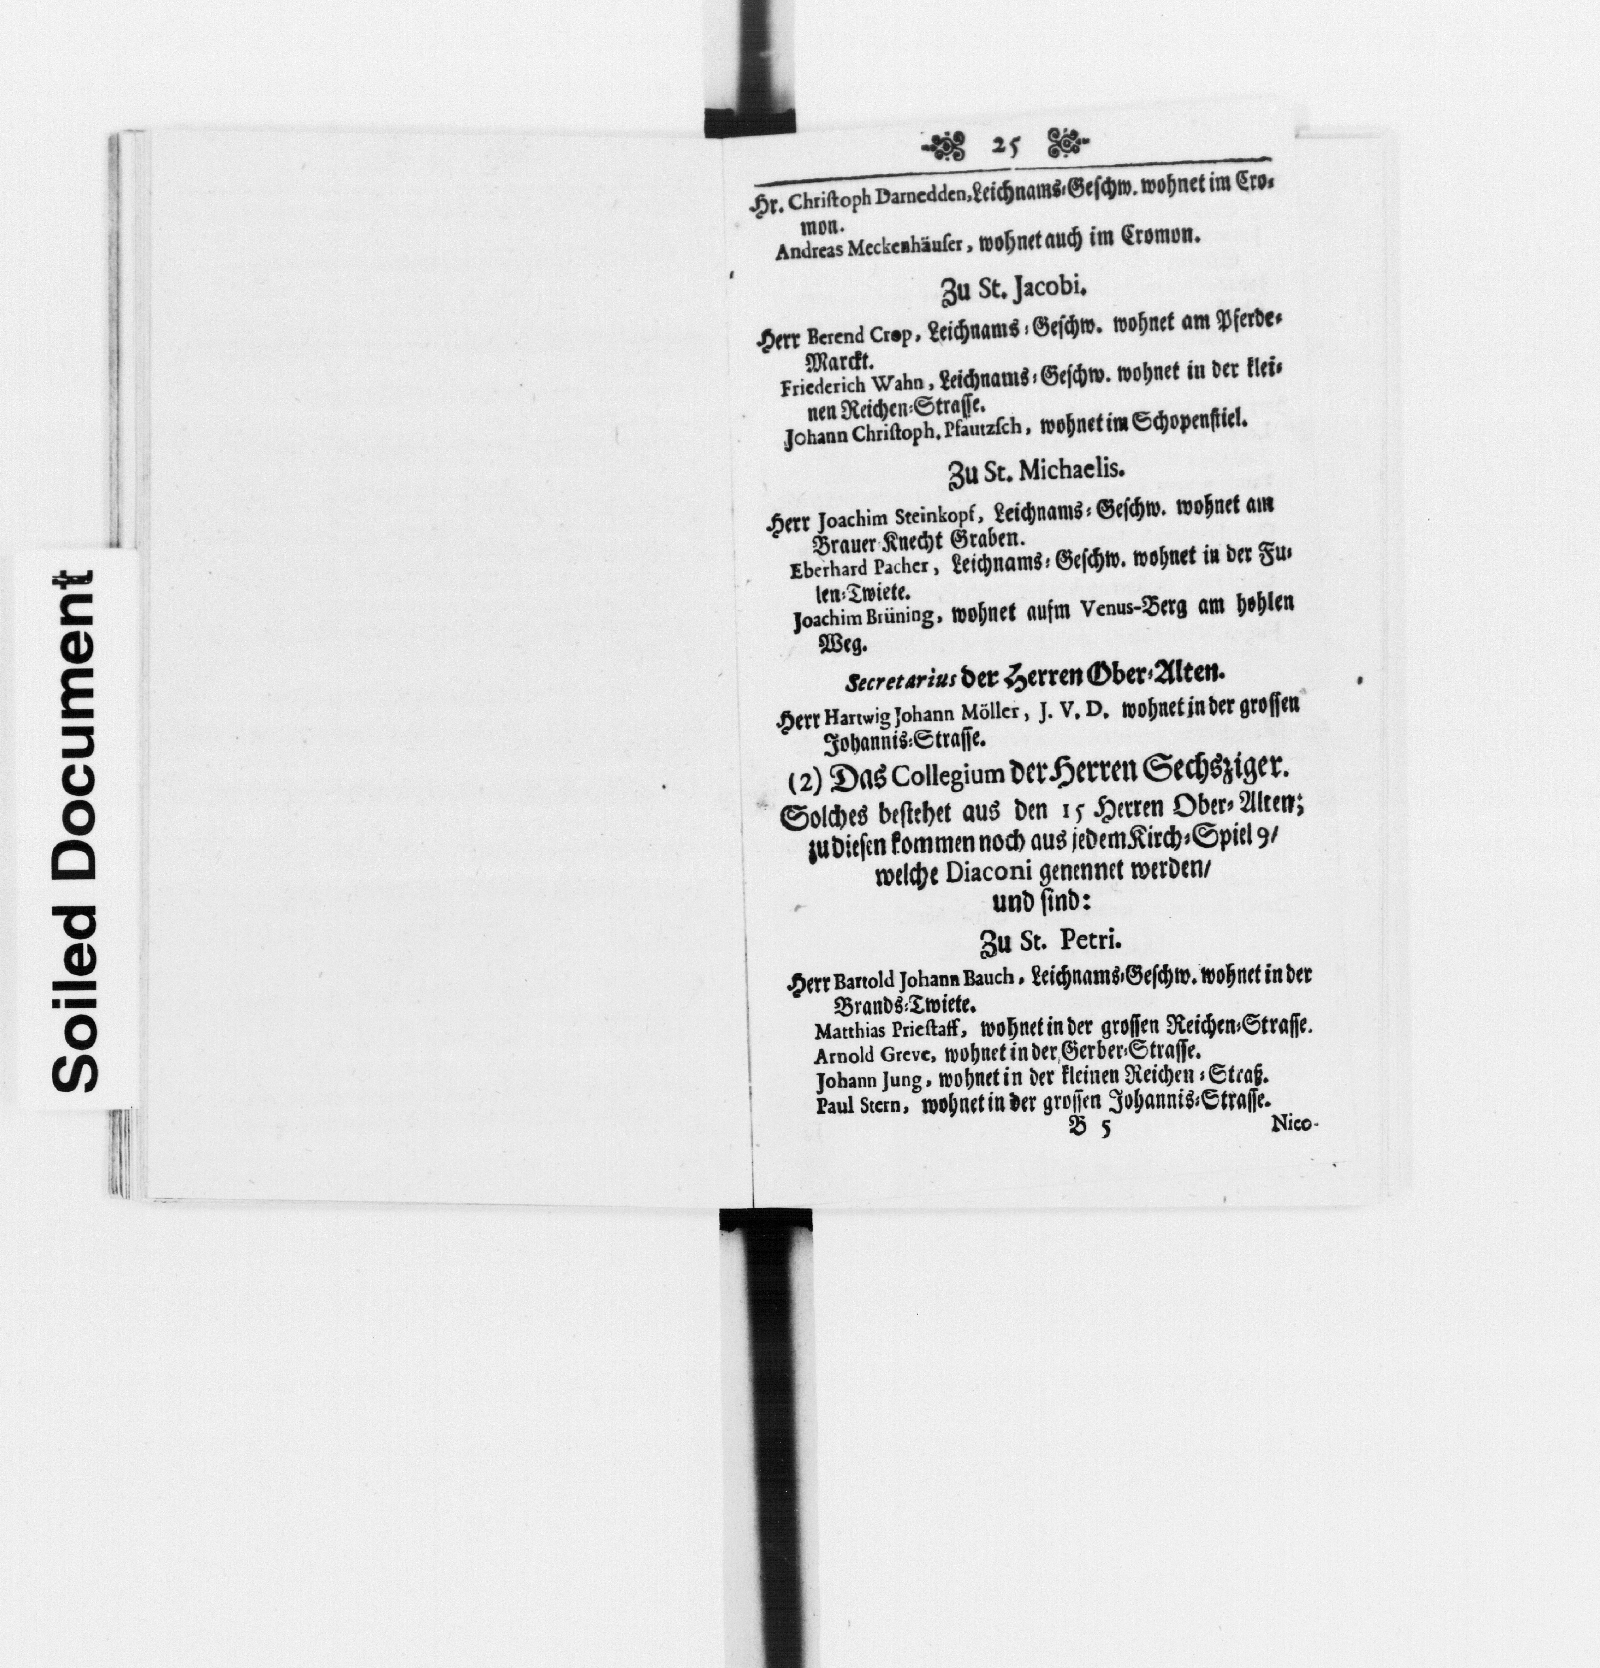 Soiled Document
25
Hr. Christoph Darnedden, Leichnams-Geschw. wohnet im Cro-
mon.
Andreas Meckenhäuser, wohnet auch im Cromon.
Zu St. Jacobi.
Herr Berend Crop, Leichnams-Geschw. wohnet am Pferde-
Marckt.
Friederich Wahn, Leichnams-Geschw. wohnet in der klei-
nen Reichen-Strasse.
Johann Christoph. Pfautzsch, wohnet im Schopenstiel.
Zu St. Michaelis.
Herr Joachim Steinkopf, Leichnams-Geschw. wohnet am
Brauer-Knecht Graben.
Eberhard Pacher, Leichnams-Geschw. wohnet in der Fu-
len-Twiete.
Joachim Brüning, wohnet aufm Venus-Berg am hohlen
Weg.
Secretarius der Herren Ober-Alten.
Herr Hartwig Johann Möller, J. V. D. wohnet in der grossen
Johannis-Strasse.
(2) Das Collegium der Herren Sechsziger.
Solches bestehet aus den 15 Herren Ober-Alten;
zu diesen kommen noch aus jedem Kirch-Spiel 9/
welche Diaconi genennet werden/
und sind:
Zu St. Petri.
Herr Bartold Johann Bauch, Leichnams-Geschw. wohnet in der
Brands-Twiete.
Matthias Priestaff, wohnet in der grossen Reichen-Strasse.
Arnold Greve, wohnet in der Gerber-Strasse.
Johann Jung, wohnet in der kleinen Reichen-Straß.
Paul Stern, wohnet in der grossen Johannis-Strasse.
B 5 Nico-